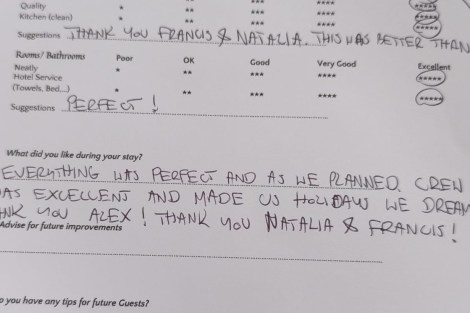 Quality * ** *** **** *****
Kitchen (clean) * ** *** **** *****
Suggestions THANK YOU FRANCIS & NATALIA. THIS WAS BETTER THAN
Rooms/ Bathrooms Poor OK Good Very Good Excellent
Neatly * ** *** **** *****
Hotel Service
(Towels, Bed...) * ** *** **** *****
Suggestions PERFECT!
What did you like during your stay?
EVERYTHING WAS PERFECT AND AS WE PLANNED. CREW
AS EXCELLENT AND MADE US HOLIDAYS WE DREAM
NK YOU ALEX! THANK YOU NATALIA & FRANCIS!
Advise for future improvements
o you have any tips for future Guests?